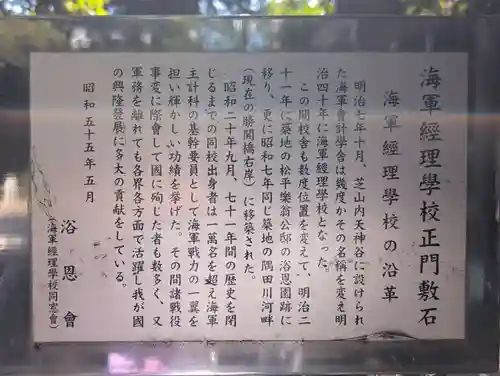 海軍經理學校正門敷石
海軍經理學校の沿革
明治七年十月、芝山内天神谷に設けられ
た海軍會計學舎は幾度かその名稱を変え明
治四十年に海軍經理學校となった。
この間校舎も数度位置を変えて、明治二
十一年に築地の松平楽翁公邸の浴恩園跡に
移り、更に昭和七年同じ築地の隅田川河畔
(現在の勝鬨橋右岸)に移築された。
昭和二十年九月、七十一年間の歴史を閉
じるまでの同校出身者は一萬名を超え海軍
主計科の基幹要員として海軍戦力の一翼を
担い輝かしい功績を挙げた。その間諸戦役
事変に際會して國に殉じた者も数多く、又
軍務を離れても各界各方面で活躍し我が國
の興隆發展に多大の貢献をしている。
昭和五十五年五月
浴恩會
(海軍經理學校同窓會)